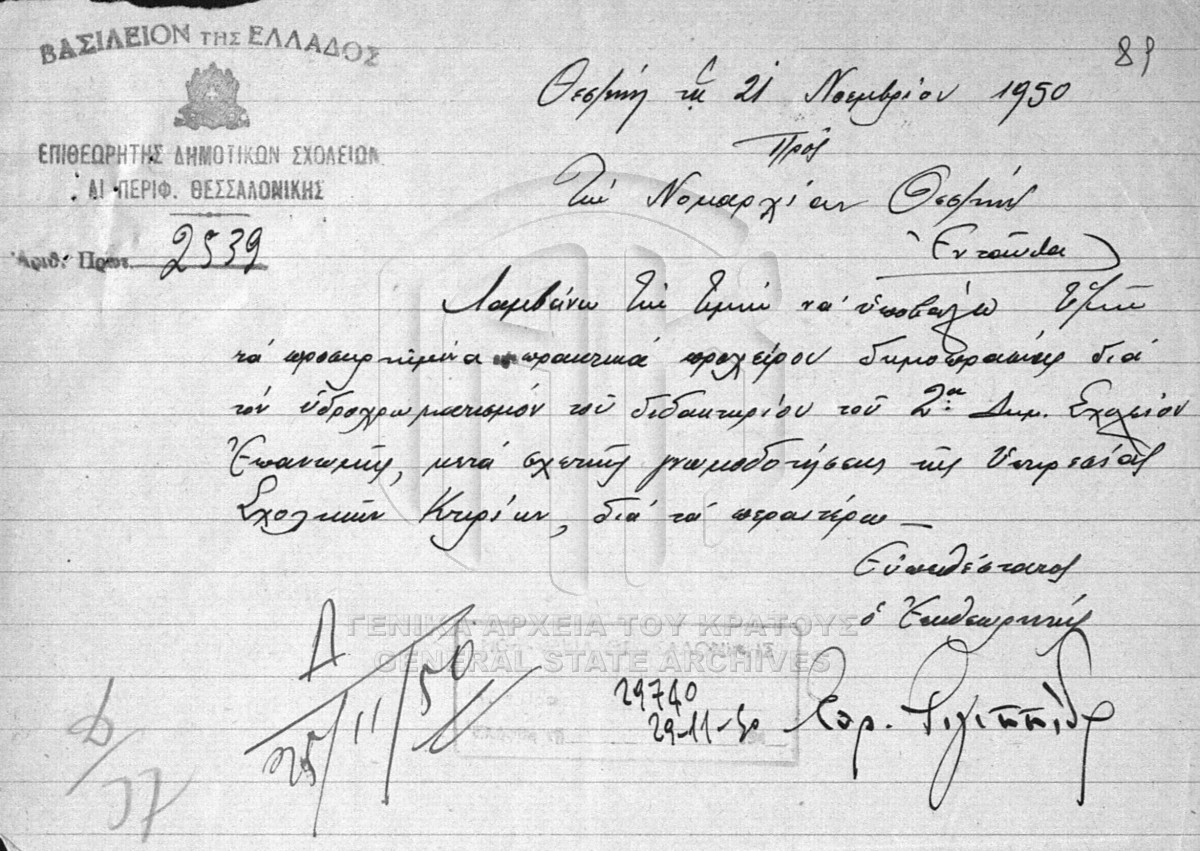 ΒΑΣΙΛΕΙΟΝ ΤΗΣ ΕΛΛΑΔΟΣ
89
Θεσ)νίκῃ τῇ 21 Νοεμβρίου 1950
ΕΠΙΘΕΩΡΗΤΗΣ ΔΗΜΟΤΙΚΩΝ ΣΧΟΛΕΙΩΝ
Πρὸς
Α' ΠΕΡΙΦ. ΘΕΣΣΑΛΟΝΙΚΗΣ
Τὴν Νομαρχίαν Θεσ)νίκης
Ἀριθ. Πρωτ. 2539
Ἐνταῦθα
Λαμβάνω τὴν τιμὴν νὰ ὑποβάλω ὑμῖν
τὰ προσηρτημένα πρακτικὰ προχείρου δημοπρασίας διὰ
τὸν ὑδροχρωματισμὸν τοῦ διδακτηρίου τοῦ 2ου Δημ. Σχολείου
Ἐπανωμῆς, μετὰ σχετικῆς γνωμοδοτήσεως τῆς Ὑπηρεσίας
Σχολικῶν Κτιρίων, διὰ τὰ περαιτέρω
Εὐπειθέστατος
ὁ Ἐπιθεωρητής
ΓΕΝΙΚΑ ΑΡΧΕΙΑ ΤΟΥ ΚΡΑΤΟΥΣ
GENERAL STATE ARCHIVES
Δ
25/11/50
29740
29-11-50